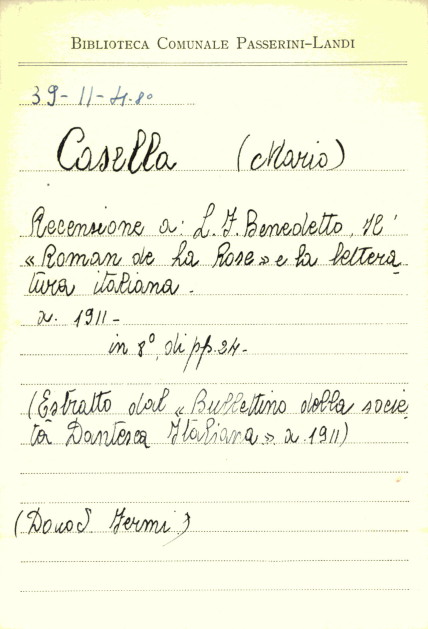 BIBLIOTECA COMUNALE PASSERINI-LANDI
39-11-4.8º
Casella (Mario)
Recensione a: L. F. Benedetto, Il
«Roman de la Rose» e la lettera
tura italiana.
a. 1911-
in 8º, di pp. 24-
(Estratto dal «Bullettino della socie
tà Dantesca Italiana» a. 1911)
(Dono S. Fermi)